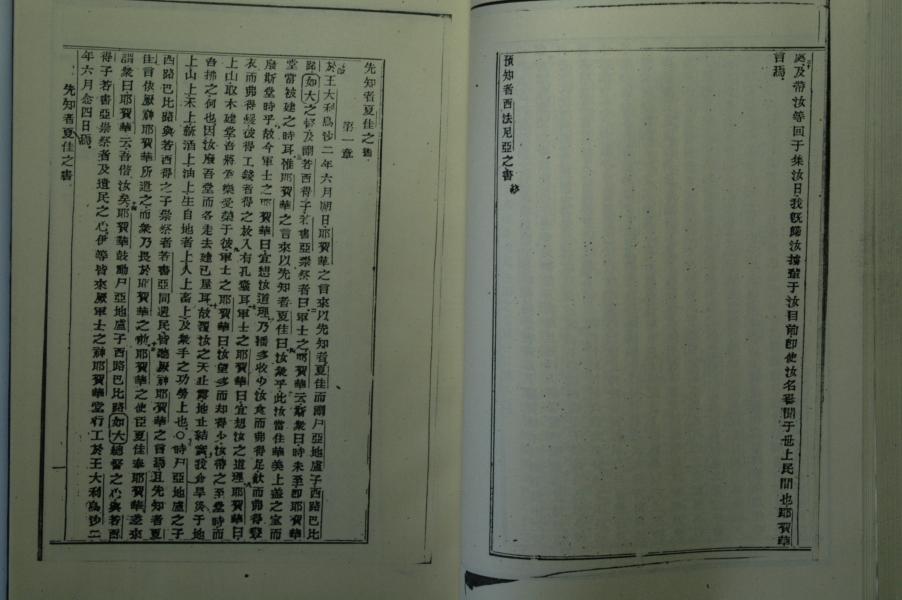 處及帶汝等回于集汝日我既歸汝擄輩于汝目前卽使汝名奢聞于世上民間也耶賀華
言焉
預知者西法尼亞之書終
先知者夏佳之書
第一章
於王大利烏沙二年六月朔日耶賀華之言來以先知者夏佳而謂尸亞地盧子西路巴比
路如大之督及謂若西得子若書亞崇祭者曰軍士之耶賀華云斯衆曰時未至卽耶賀華
堂當被建之時耳惟耶賀華之言來以先知者夏佳曰汝衆乎此汝當住華美上蓋之室而
廢斯堂時乎故今軍士之耶賀華曰宜想汝道理乃播多收少汝食而弗得足飲而弗得
衣而弗得經彼得工錢者得之放入有孔囊耳軍士之耶賀華曰宜想汝之道理耶賀華曰
上山取木建堂吾將受榮于彼軍士之耶賀華曰汝望多而却得少汝帶之至堂時而
吾拂之何也因汝廢吾堂而各走去建已屋耳故覆汝之天止露地止結實我命旱災于地
上山上禾上新酒上油上生自地者上人上畜上及衆手之功勞上也〇時尸亞地盧之子
西路巴比路與若西得之子崇祭者若書亞同遺民皆聽厥神耶賀華之言焉且先知者夏
佳言依厥神耶賀華所遣之而衆乃畏於耶賀華之前耶賀華之使臣夏佳奉耶賀華差來
謂衆曰耶賀華云吾偕汝矣耶賀華鼓動尸亞地盧子西路巴比路如大總督之心與若西
得子若書亞崇祭者及遺民之心伊等皆來厥軍士之神耶賀華堂行工於王大利烏沙二
年六月念四日焉
先知者夏佳之書